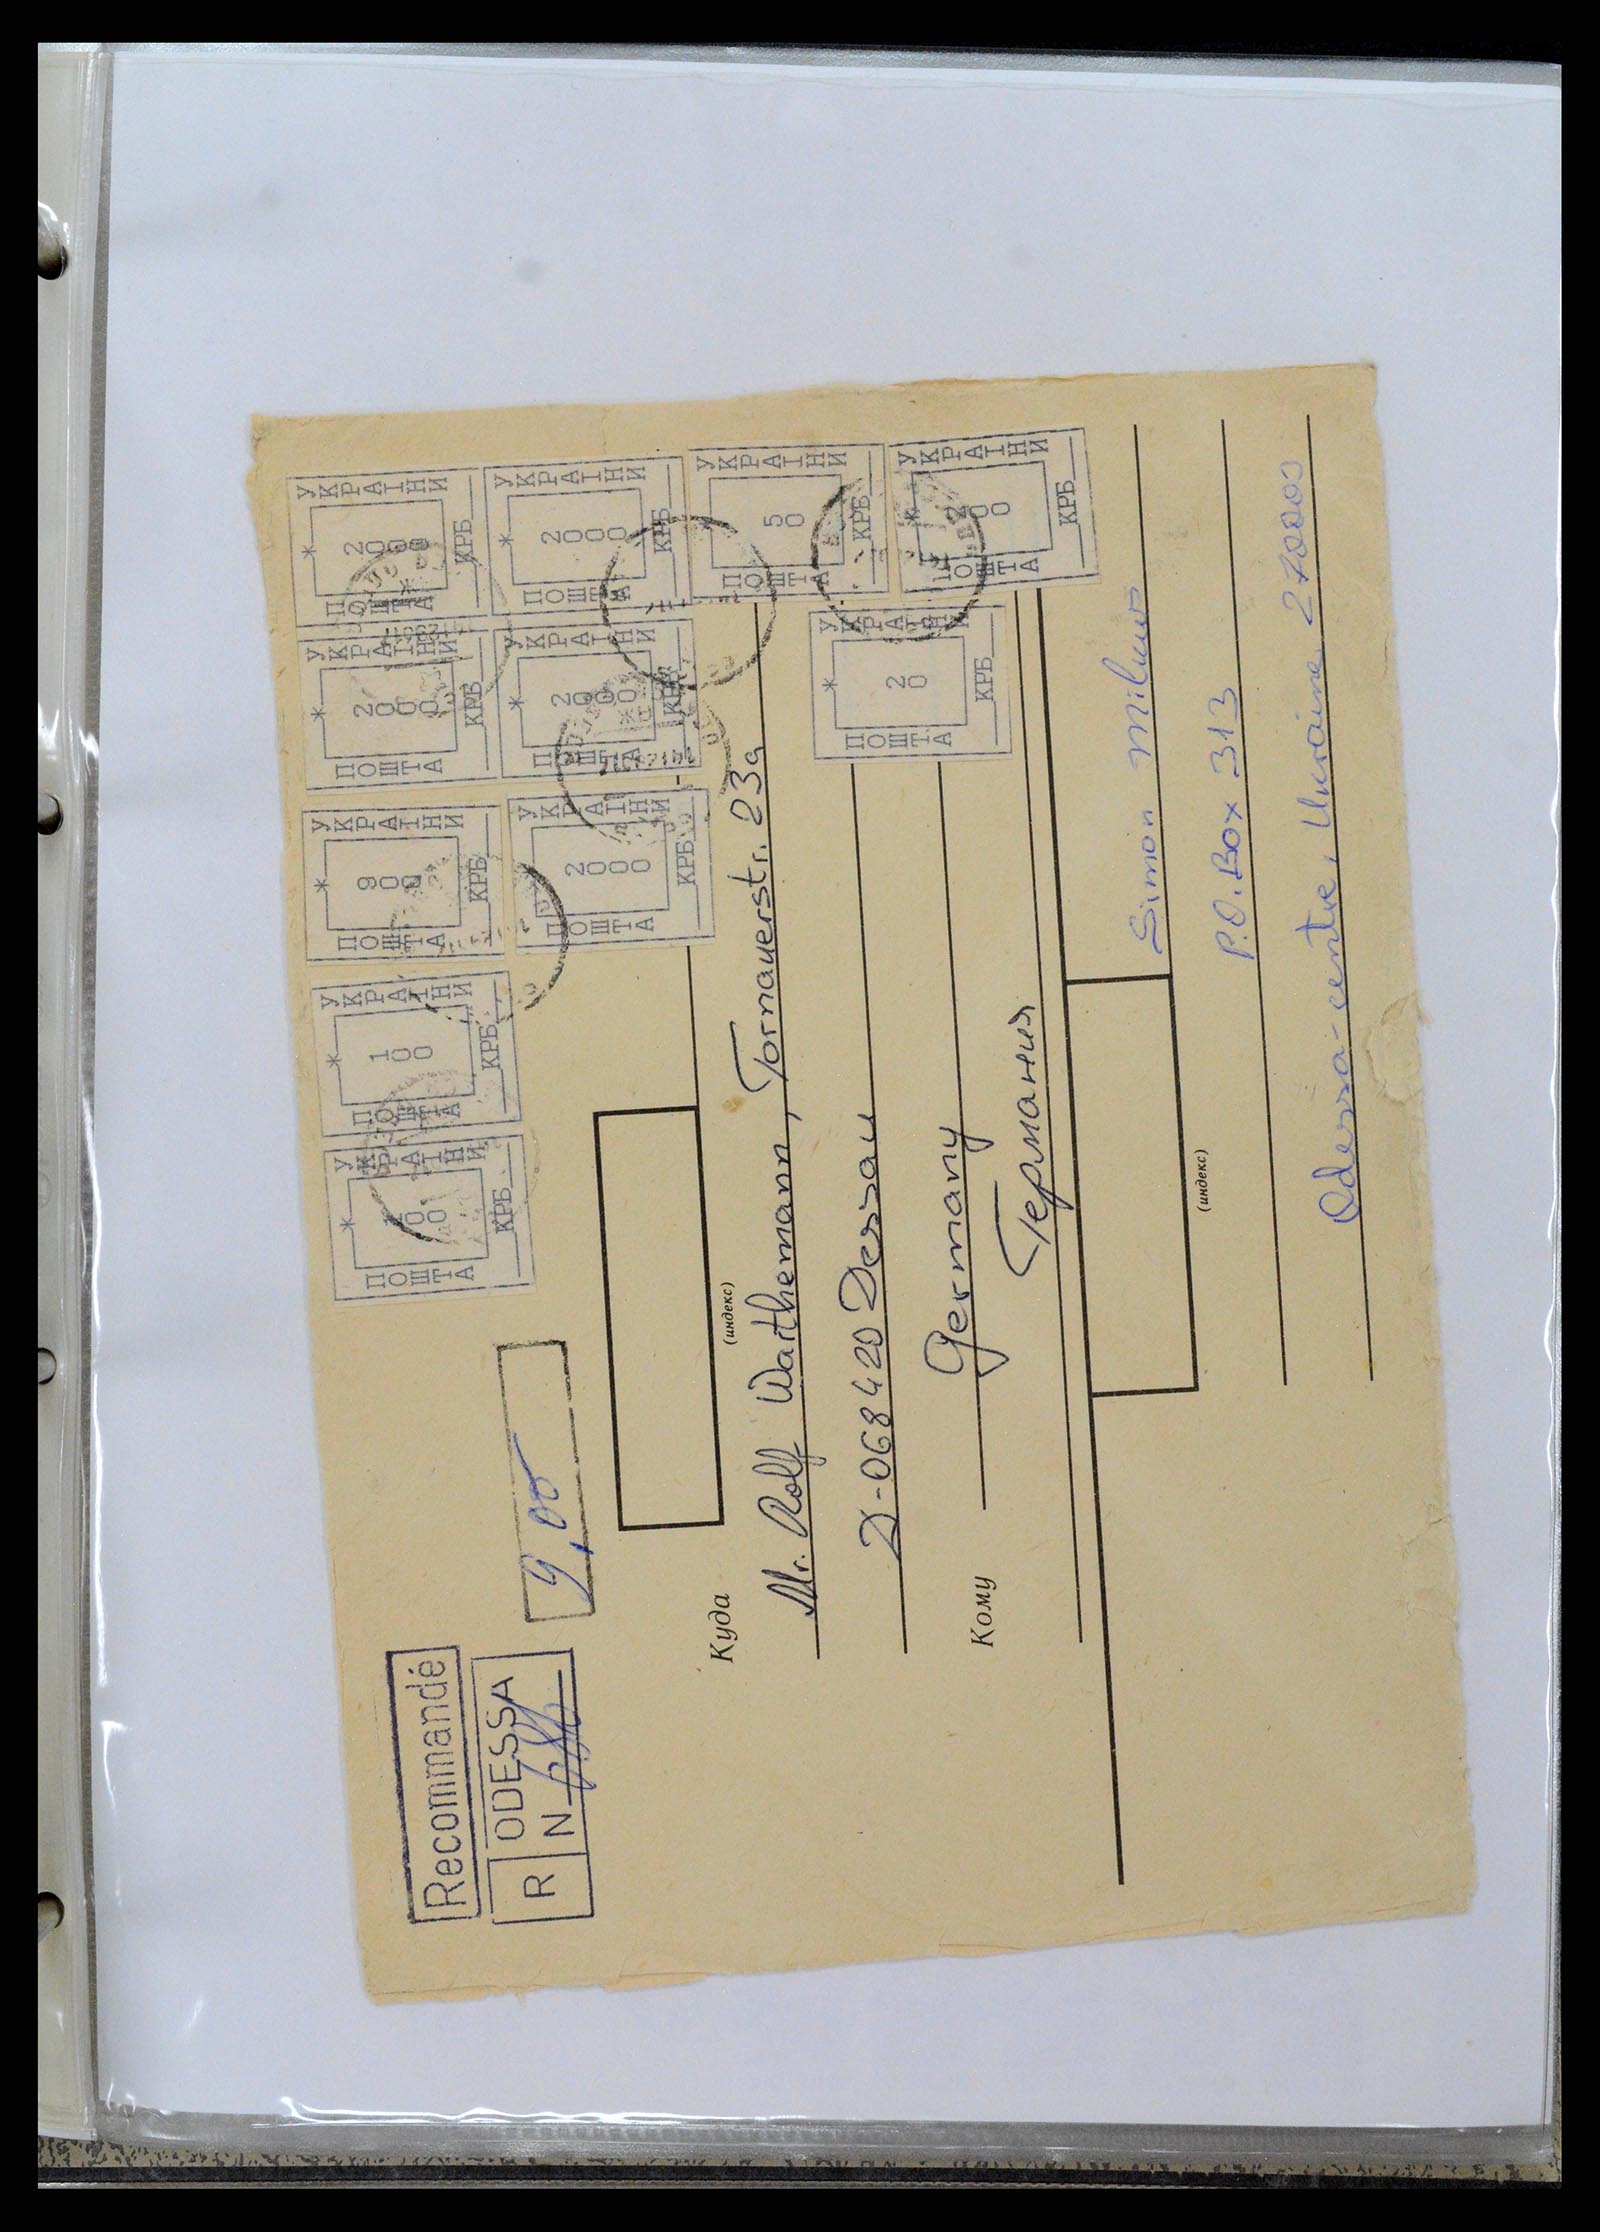 Recommandé
R ODESSA
N
9,00
ПОШТА * 100 УКРАЇНИ КРБ
ПОШТА * 100 УКРАЇНИ КРБ
ПОШТА * 900 УКРАЇНИ КРБ
ПОШТА * 2000 УКРАЇНИ КРБ
ПОШТА * 2000 УКРАЇНИ КРБ
ПОШТА * 2000 УКРАЇНИ КРБ
ПОШТА * 2000 УКРАЇНИ КРБ
ПОШТА * 2000 УКРАЇНИ КРБ
ПОШТА * 50 УКРАЇНИ КРБ
ПОШТА * 20 УКРАЇНИ КРБ
ПОШТА * УКРАЇНИ КРБ
(индекс)
Куда
Mr. Rolf Warthemann, Tornauerstr. 23a
D-068420 Dessau
Кому
Germany
Германия
(индекс)
Simon
P.O.Box 313
Odessa-centre, Ukraine, 270003